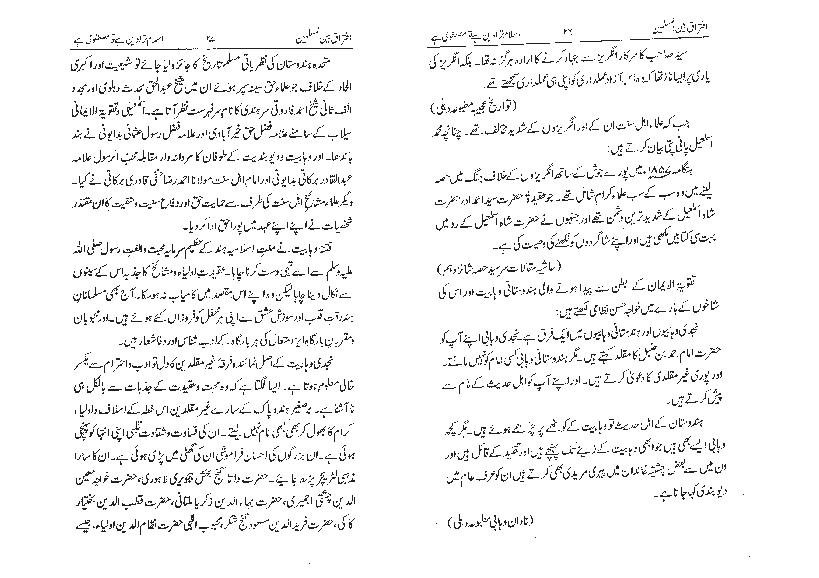 افتراق بین المسلمین ۲۶
سید صاحب کا سرکار انگریز سے جہاد کرنے کا ارادہ ہرگز نہ تھا۔ بلکہ انگریز کی
(تواریخ عجیبہ مطبوعہ دہلی)
جب کہ علماء اہل سنت ان کے اور انگریزوں کے شدید مخالف تھے۔ چنانچہ محمد
اسمٰعیل پانی پتی بیان کرتے ہیں:
ہنگامہ ۱۸۵۷ء میں پورے جوش کے ساتھ انگریزوں کے خلاف جنگ میں حصہ
لینے میں وہ سب کے سب علماء کرام شامل تھے۔ جو عقیدۃً حضرت سید احمد اور حضرت
شاہ اسمٰعیل کے شدید ترین دشمن تھے اور جنہوں نے حضرت شاہ اسمٰعیل کے رد میں
بہت سی کتابیں لکھی ہیں اور اپنے شاگردوں کو لکھنے کی وصیت کی ہے۔
(حاشیہ مقالات سرسید حصہ شانزدہم)
تقویۃ الایمان کے بطن سے پیدا ہونے والی ہندوستانی وہابیت اور اس کی
شاخوں کے بارے میں خواجہ حسن نظامی لکھتے ہیں:
نجدی وہابیوں اور ہندوستانی وہابیوں میں ایک فرق ہے نجدی وہابی اپنے آپ کو
حضرت امام احمد بن حنبل کا مقلد کہتے ہیں۔ مگر ہندوستانی وہابی کسی امام کو نہیں مانتے۔
اور پوری غیر مقلدی کا دعویٰ کرتے ہیں۔ اور اپنے آپ کو اہل حدیث کے نام سے
پیش کرتے ہیں۔
ہندوستان کے اہل حدیث تو وہابیت کے کوٹھے پر چڑھے ہوئے ہیں۔ مگر کچھ
وہابی ایسے بھی ہیں جو ابھی وہابیت کے زینے تک پہنچے ہیں اور تقلید کے قائل ہیں اور
ان میں سے بعض چشتیہ خاندان میں پیری مریدی بھی کرتے ہیں ان کو عرف عام میں
دیوبندی کہا جاتا ہے۔
(نادان وہابی مطبوعہ دہلی)
افتراق بین المسلمین ۲۷
متحدہ ہندوستان کی نظریاتی مسلم تاریخ کا جائزہ لیا جائے تو شیعیت اور اکبری
الحاد کے خلاف جو علماء حق سینہ سپر ہوئے ان میں شیخ عبدالحق محدث دہلوی اور مجدد
الف ثانی شیخ احمد فاروقی سرہندی کا نام سر فہرست نظر آتا ہے۔ اسمٰعیلی و تقویۃ الایمانی
سیلاب کے سامنے علامہ فضل حق خیرآبادی اور علامہ فضل رسول عثمانی بدایونی نے بند
باندھا۔ اور وہابیت و دیوبندیت کے طوفان کا مردانہ وار مقابلہ محب الرسول علامہ
عبدالقادر برکاتی بدایونی اور امام اہل سنت مولانا احمد رضا حنفی قادری برکاتی نے کیا۔
دیگر علماء و مشائخ اہل سنت کی طرف سے حمایت حق اور دفاع سنیت و حنفیت کا ان مقتدر
شخصیات نے اپنے اپنے عہد میں پورا حق ادا کر دیا۔
فتنۂ وہابیت نے ملت اسلامیہ ہند کے عظیم سرمایہ محبت و الفت رسول صلی اللہ
علیہ وسلم سے اسے تہی دست کرنا چاہا۔ عقیدت اولیاء و مشائخ کا جذبہ اس کے سینوں
سے نکال دینا چاہا لیکن وہ اپنے اس مقصد میں کامیاب نہ ہو سکا۔ آج بھی مسلمانان
ہند رقت قلب اور سوزش عشق سے اپنی ہر محفل کو فروزاں کئے ہوئے ہیں۔ اور محبوبان
و مقربین بارگاہ ایزد متعال کی ہر بارگاہ کے ادب شناس اور وفا شعار ہیں۔
نجدی وہابیت کے اصل نمائندہ فرقہ غیر مقلدین کا دل تو ادب و احترام سے یکسر
خالی معلوم ہوتا ہے۔ ایسا لگتا ہے کہ وہ محبت و عقیدت کے جذبات سے بالکل ہی
نا آشنا ہے۔ برصغیر ہند و پاک کے سارے غیر مقلدین اس خطہ کے اسلاف و اولیاء
کرام کا بھول کر بھی نام نہیں لیتے۔ ان کی قساوت و شقاوت قلبی اپنی انتہا کو پہنچی
ہوئی ہے۔ ان بزرگوں کی احسان فراموشی ان کی گھٹی میں پڑی ہوئی ہے۔ ان کا سارا
مذہبی لٹریچر پڑھ جائیے۔ حضرت داتا گنج بخش ہجویری لاہوری، حضرت خواجہ معین
الدین چشتی اجمیری، حضرت بہاء الدین زکریا ملتانی، حضرت قطب الدین بختیار
کاکی، حضرت فرید الدین مسعود گنج شکر، محبوب الٰہی حضرت نظام الدین اولیاء، جیسے